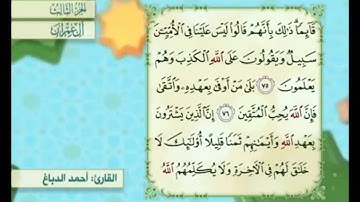 الجزء الثالث
آل عمران
قَآئِمًا ۗ ذَٰلِكَ بِأَنَّهُمْ قَالُوا۟ لَيْسَ عَلَيْنَا فِى ٱلْأُمِّيِّـۧنَ
سَبِيلٌ وَيَقُولُونَ عَلَى ٱللَّهِ ٱلْكَذِبَ وَهُمْ
يَعْلَمُونَ ٧٥ بَلَىٰ مَنْ أَوْفَىٰ بِعَهْدِهِۦ وَٱتَّقَىٰ
فَإِنَّ ٱللَّهَ يُحِبُّ ٱلْمُتَّقِينَ ٧٦ إِنَّ ٱلَّذِينَ يَشْتَرُونَ
بِعَهْدِ ٱللَّهِ وَأَيْمَـٰنِهِمْ ثَمَنًا قَلِيلًا أُو۟لَـٰٓئِكَ لَا
خَلَـٰقَ لَهُمْ فِى ٱلْـَٔاخِرَةِ وَلَا يُكَلِّمُهُمُ ٱللَّهُ
القارئ: أحمد الدباغ